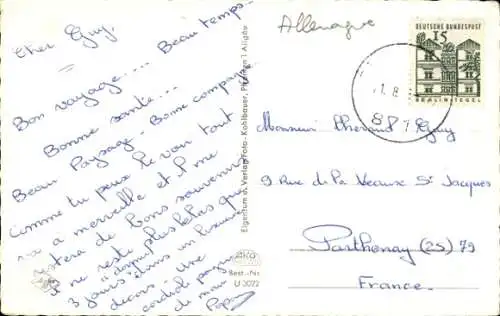 Cher Guy,
Bon voyage... Beau temps...
Bonne santé...
Beau Paysage. Bonne compagnie.
Comme tu peux le voir tout
va à merveille et il me
restera de bons souvenirs
je ne reste plus que
3 jours dans un
décors. Une
cordial
de mon
Allemagne
DEUTSCHE BUNDESPOST
15
BERLIN-TEGEL
Monsieur Guy
9 Rue de la Veaux St Jacques
Parthenay (2S) 79
France.
Eigentum u. Verlag Foto-Kohlbauer, Pfronten i. Allgäu
Best.-Nr.
U 3022